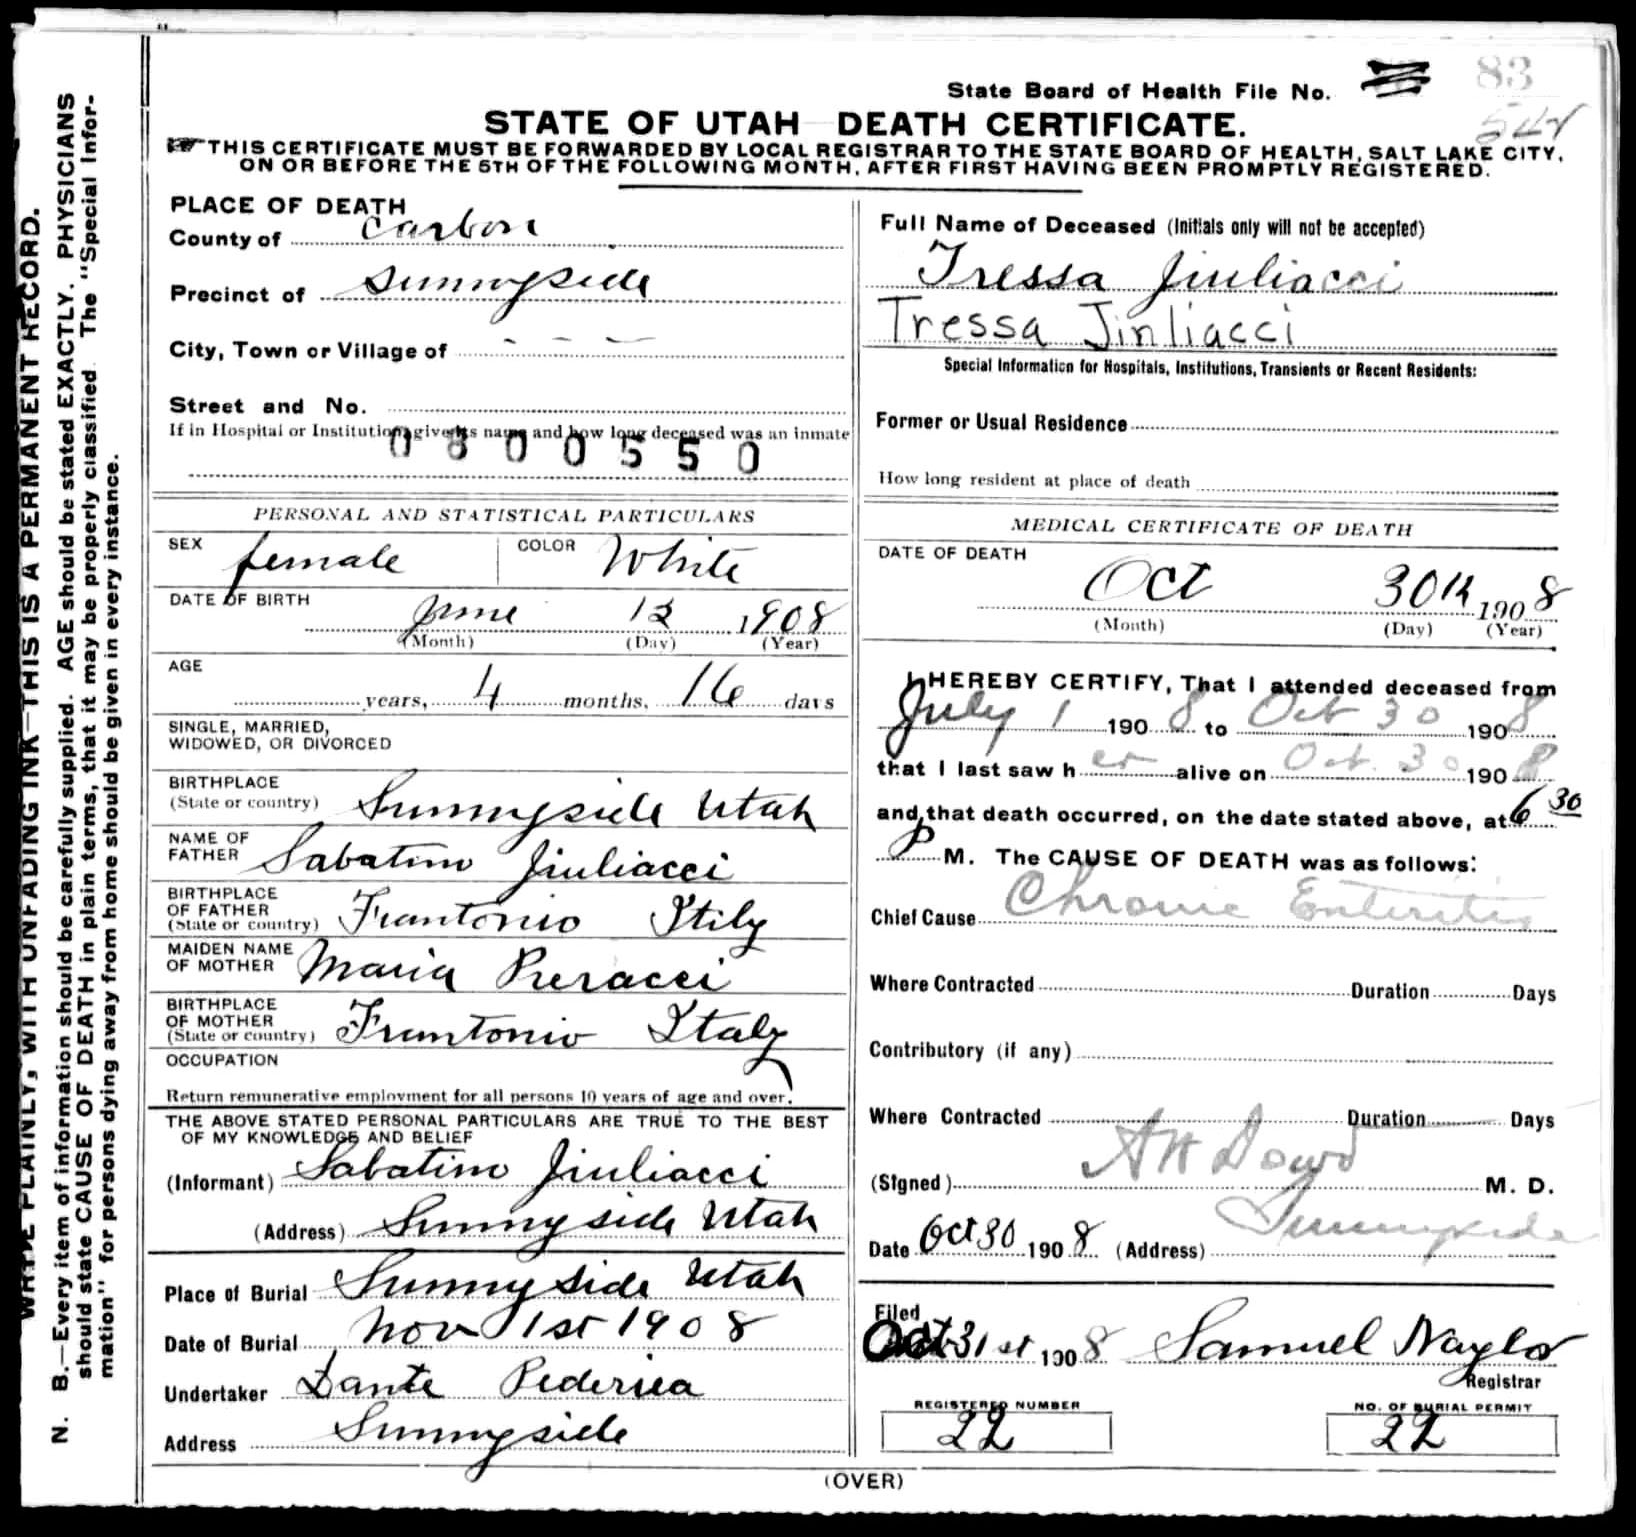 State Board of Health File No. 83
STATE OF UTAH DEATH CERTIFICATE.
THIS CERTIFICATE MUST BE FORWARDED BY LOCAL REGISTRAR TO THE STATE BOARD OF HEALTH, SALT LAKE CITY,
ON OR BEFORE THE 5TH OF THE FOLLOWING MONTH, AFTER FIRST HAVING BEEN PROMPTLY REGISTERED.
WRITE PLAINLY, WITH UNFADING INK—THIS IS A PERMANENT RECORD.
N. B.—Every item of information should be carefully supplied. AGE should be stated EXACTLY. PHYSICIANS
should state CAUSE OF DEATH in plain terms, that it may be properly classified. The "Special Infor-
mation" for persons dying away from home should be given in every instance.
PLACE OF DEATH
County of Carbon
Precinct of Sunnyside
City, Town or Village of - - -
Street and No.
If in Hospital or Institution give its name and how long deceased was an inmate
0800550
PERSONAL AND STATISTICAL PARTICULARS
SEX female COLOR White
DATE OF BIRTH June 13 1908
(Month) (Day) (Year)
AGE
years, 4 months, 16 days
SINGLE, MARRIED,
WIDOWED, OR DIVORCED
BIRTHPLACE
(State or country) Sunnyside Utah
NAME OF
FATHER Sabatino Jiuliacci
BIRTHPLACE
OF FATHER
(State or country) Frantonio Itily
MAIDEN NAME
OF MOTHER Maria Pieracci
BIRTHPLACE
OF MOTHER
(State or country) Frantonio Italy
OCCUPATION
Return remunerative employment for all persons 10 years of age and over.
THE ABOVE STATED PERSONAL PARTICULARS ARE TRUE TO THE BEST
OF MY KNOWLEDGE AND BELIEF
(Informant) Sabatino Jiuliacci
(Address) Sunnyside Utah
Place of Burial Sunnyside Utah
Date of Burial Nov 1st 1908
Undertaker Dante
Address Sunnyside
Full Name of Deceased (Initials only will not be accepted)
Tressa Jiuliacci
Tressa Jinliacci
Special Information for Hospitals, Institutions, Transients or Recent Residents:
Former or Usual Residence
How long resident at place of death
MEDICAL CERTIFICATE OF DEATH
DATE OF DEATH
Oct 30th 1908
(Month) (Day) (Year)
I HEREBY CERTIFY, That I attended deceased from
July 1 1908 to Oct 30 1908
that I last saw her alive on Oct. 30 1908
and that death occurred, on the date stated above, at 6 30
P M. The CAUSE OF DEATH was as follows:
Chief Cause Chronic Enteritis
Where Contracted Duration Days
Contributory (if any)
Where Contracted Duration Days
(Signed) A H Dowd M. D.
Date Oct 30 1908 (Address) Sunnyside
Filed
Oct 31st 1908 Samuel Naylor
Registrar
REGISTERED NUMBER
22
NO. OF BURIAL PERMIT
22
(OVER)